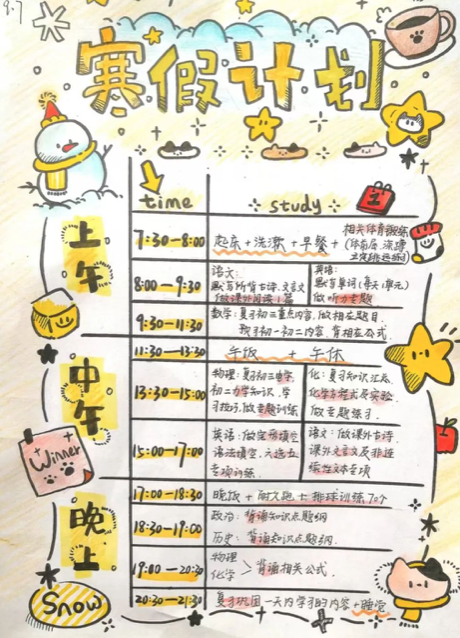 9.7
寒假计划
time
study
1
上午
7:30—8:00
起床+洗漱+早餐+
相关体育锻炼
8:00—9:30
语文:
默写所背古诗、文言文
做课外阅读1篇
英语:
默写单词(每天1单元)
做听力专题
9:30—11:30
数学:复习初三重点内容,做相应题目.
预习初一初二内容,背相应公式.
中午
11:30—13:30
午饭 + 午休
13:30—15:00
物理:复习初三电学,
初二力学知识,学
习技巧,做专题训练
化:复习知识汇总,
化学方程式及实验.
做专题练习.
15:00—17:00
英语:做完形填空
语法填空、六选五
专项训练.
语文:做课外古诗.
课外文言文及非连
续性文本专项
Winner
晚上
17:00—18:30
晚饭+耐久跑+排球训练70个
18:30—19:00
政治:背诵知识点题纲
历史:背诵知识点题纲.
19:00—20:30
物理
化学
背诵相关公式.
20:30—21:30
复习巩固一天内学习的内容+睡觉
Snow